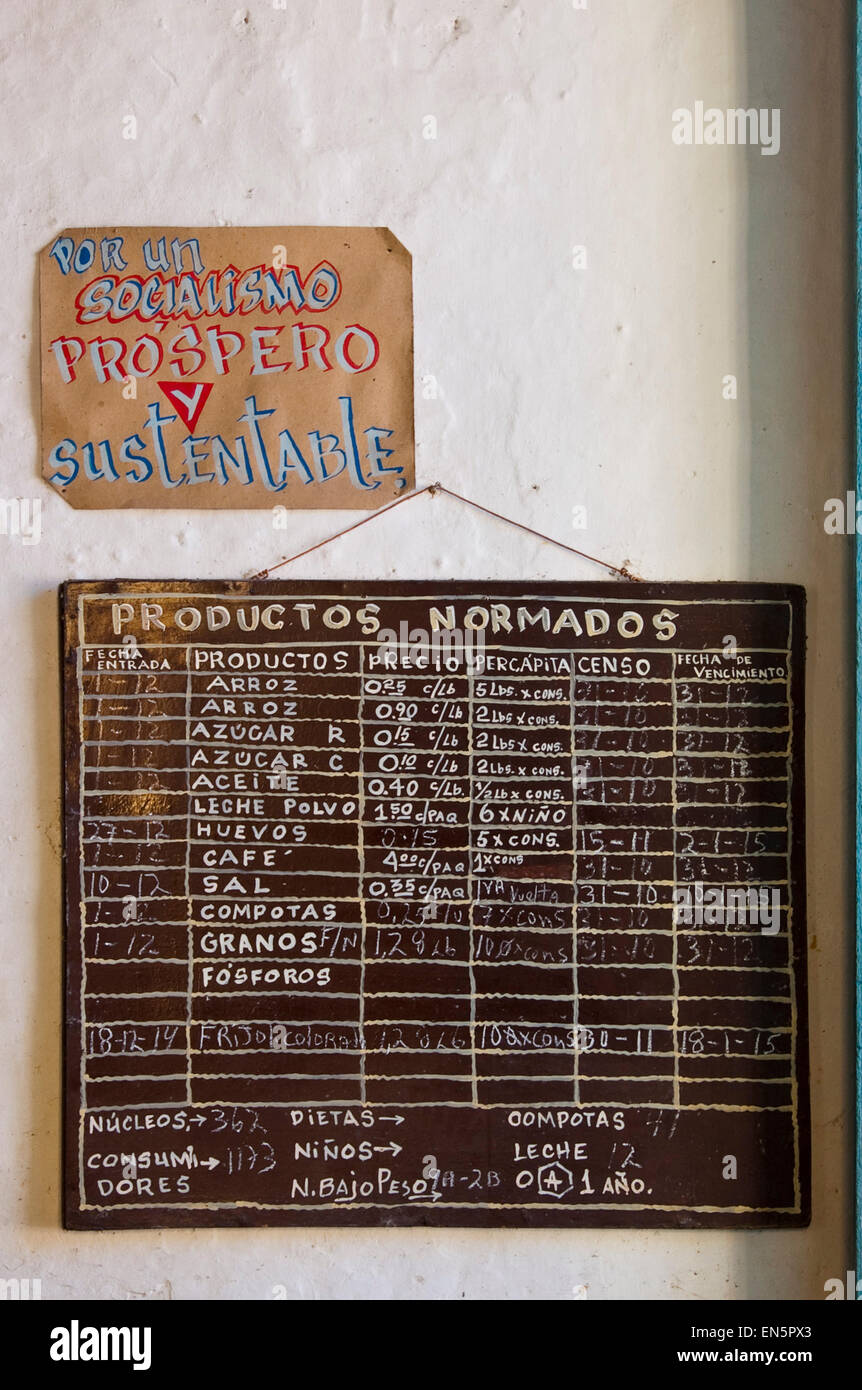 POR UN
SOCIALISMO
PRÓSPERO
Y
SUSTENTABLE.
PRODUCTOS NORMADOS
FECHA ENTRADA PRODUCTOS PRECIO PERCÁPITA CENSO FECHA DE VENCIMIENTO
1-12 ARROZ 0.25 c/Lb 5 Lbs. x CONS. 31-10 31-12
1-12 ARROZ 0.90 c/Lb 2 Lbs. x CONS. 31-10 31-12
1-12 AZÚCAR R 0.15 c/Lb 2 Lbs x CONS. 31-10 31-12
1-12 AZÚCAR C 0.10 c/Lb 2 Lbs. x CONS. 31-10 31-12
1-12 ACEITE 0.40 c/Lb. 1/2 Lb x CONS. 31-10 31-12
LECHE POLVO 1.50 c/PAQ 6 x NIÑO
27-12 HUEVOS 0.15 5 x CONS. 15-11 2-1-15
1-12 CAFÉ 4.00 c/PAQ 1 x CONS 31-10 31-12
10-12 SAL 0.35 c/PAQ 1 VA Vuelta 31-10
1-12 COMPOTAS 0,25 7 x CONS 31-10 31-12
1-12 GRANOS F/N 1,28 Lb x CONS 31-10 31-12
FÓSFOROS
18-12-14 FRIJOL COLORA Lb x CONS 30-11 18-1-15
NÚCLEOS → 362 DIETAS → COMPOTAS 41
CONSUMI → 1173 NIÑOS → LECHE 12
DORES N. BAJO PESO 9A-2B 0 A 1 AÑO.
alamy
alamy
Image ID: EN5PX3
www.alamy.com